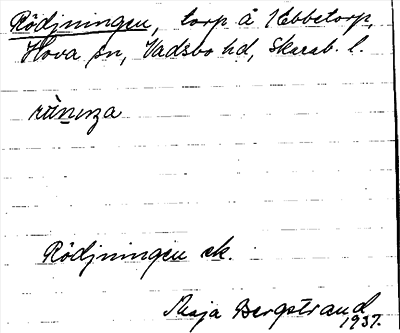 Rödjningen, torp å Ebbetorp,
Hova sn, Vadsbo hd, Skarab. l.
Rödjningen ek.
Maja Bergstrand
1937.